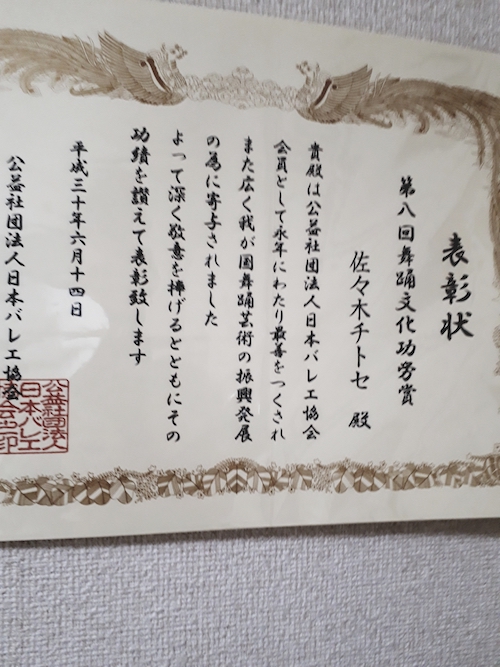 表彰状
第八回舞踊文化功労賞
佐々木チトセ 殿
貴殿は公益社団法人日本バレエ協会
会員として永年にわたり最善をつくされ
また広く我が国舞踊芸術の振興発展
の為に寄与されました
よって深く敬意を捧げるとともにその
功績を讃えて表彰致します
平成三十年六月十四日
公益社団法人日本バレエ協会
公益社団法人
日本バレエ